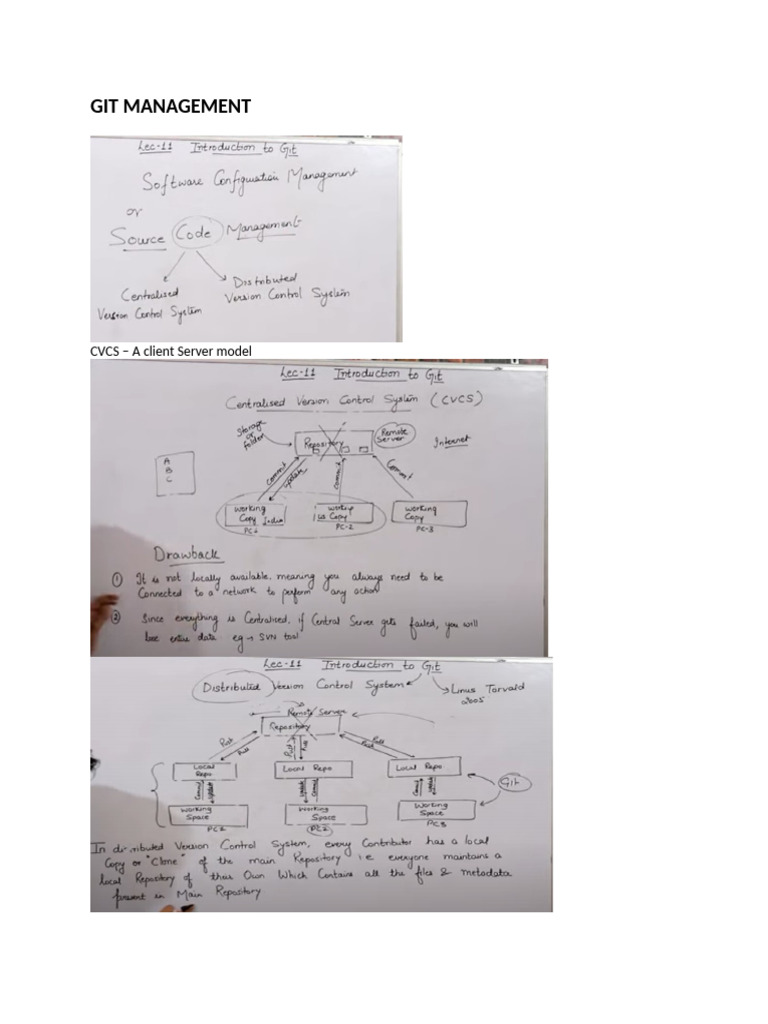 GIT MANAGEMENT
Lec-11 Introduction to Git
Software Configuration Management
or
Source Code Management
Centralised
Version Control System
Distributed
Version Control System
CVCS – A client Server model
Lec-11 Introduction to Git
Centralised Version Control System (CVCS)
Storage
or
folder
Repository
Remote
Server
Internet
A
B
C
commit
update
commit
Commit
Working
Copy India
PC1
Copy
PC-2
Working
Copy
PC-3
Drawback
① It is not locally available. meaning you always need to be
Connected to a network to perform any action
② Since everything is Centralised, if Central Server gets failed, you will
lose entire data eg → SVN tool
Lec-11 Introduction to Git
Distributed Version Control System
Linus Torvald
2005
Remote Server
Repository
Push
Pull
Push
Pull
Push
Pull
Local
Repo
Local Repo
Local Repo
Commit
Update
Update
Commit
Commit
Update
Working
Space
PC1
Working
Space
PC2
Working
Space
PC3
Git
In distributed Version Control System, every Contributor has a local
Copy or "Clone" of the main Repository i.e everyone maintains a
local Repository of their Own Which Contains all the files & metadata
present in Main Repository